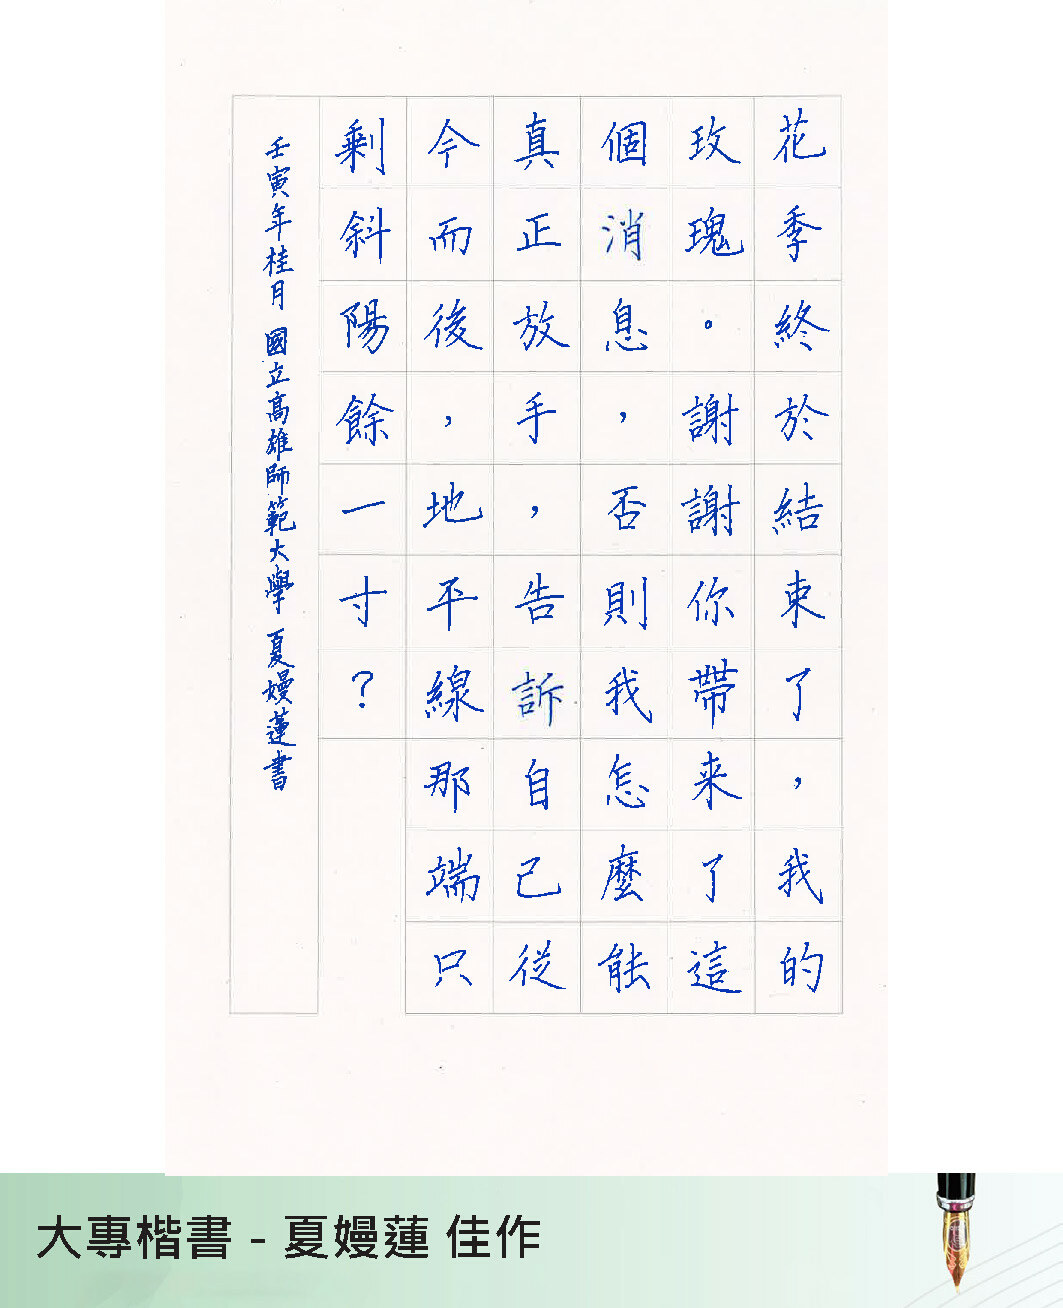 花季終於結束了，我的
玫瑰。謝謝你帶来了這
個消息，否則我怎麼能
真正放手，告訴自己從
今而後，地平線那端只
剩斜陽餘一寸？
壬寅年桂月 國立高雄師範大學 夏嫚蓮書
大專楷書 - 夏嫚蓮 佳作